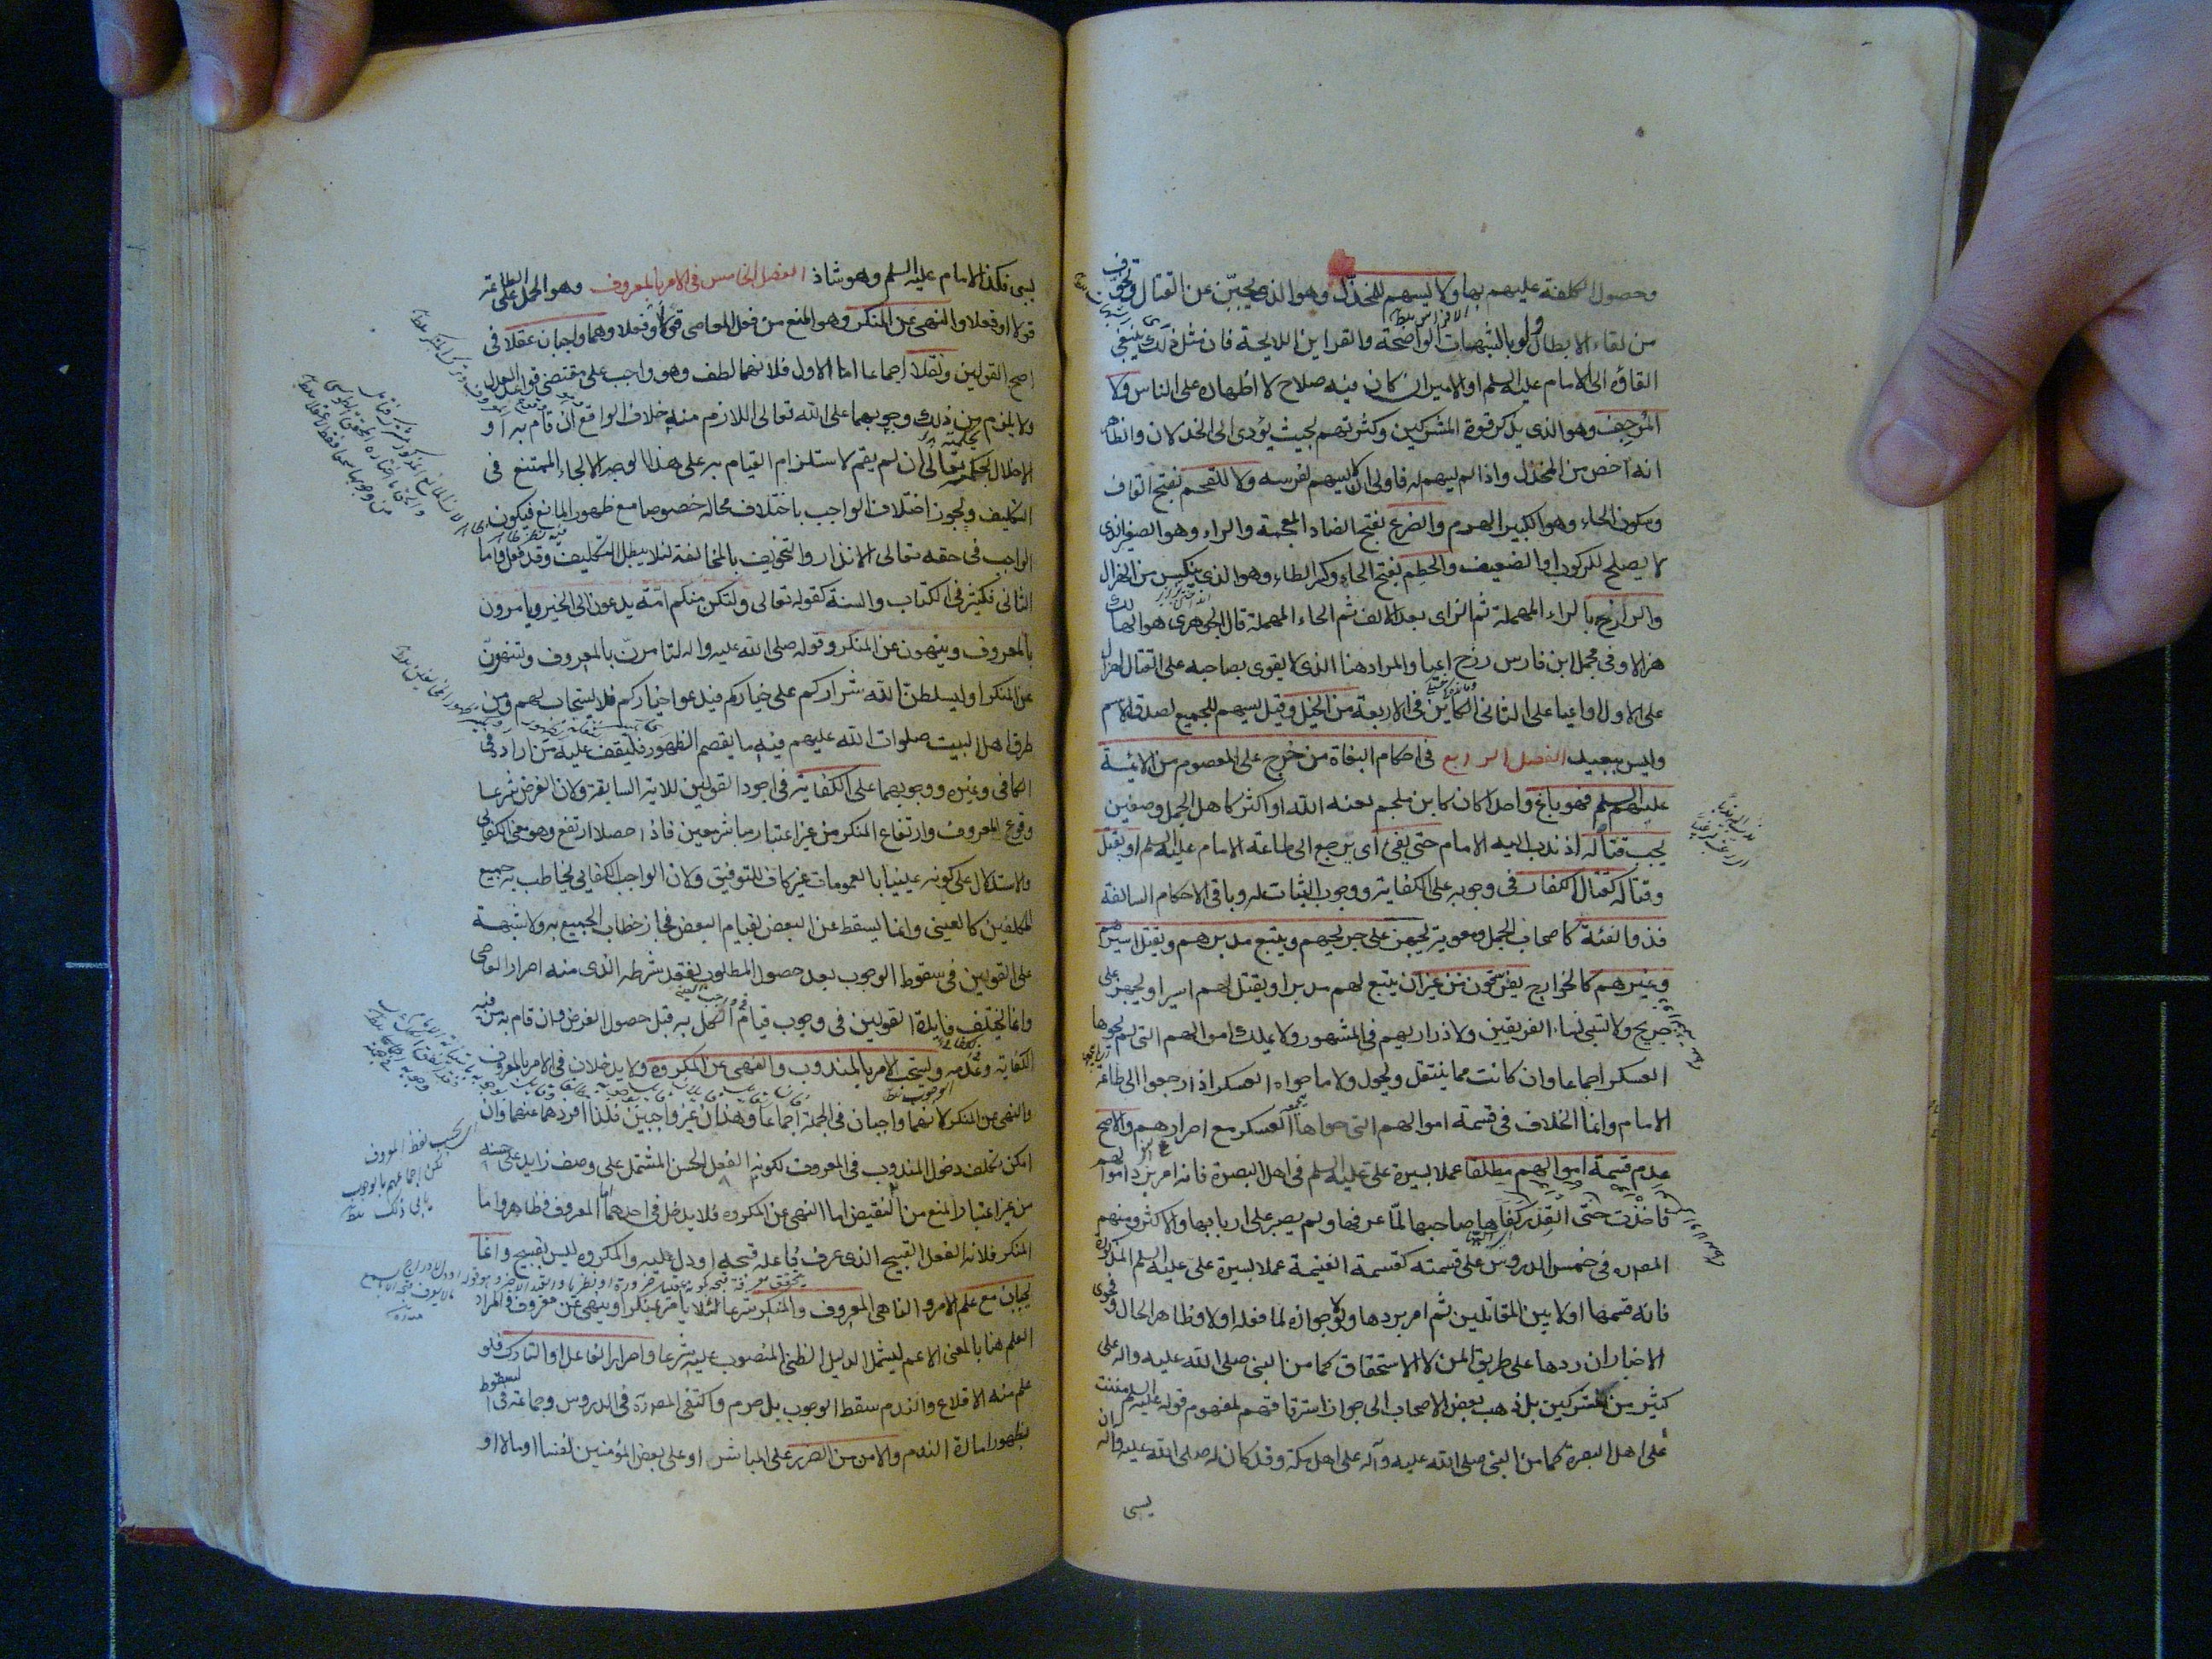 وحصول الكلفة عليهم بها ولا يسهم للمخذل وهو الذي يجبّن عن القتال ويخوف
من لقاء الابطال ولو بالشبهات الواضحة والقراين اللايحة فان مثل ذلك ينبغي
القاؤه الى الامام عليه السلم او الامير ان كان فيه صلاح لا اظهاره على الناس ولا
المرجف وهو الذي يذكر قوة المشركين وكثرتهم بحيث يؤدي الى الخذلان والظاهر
انه اخص من المخذل واذا لم يسهم له فاولى ان لا يسهم لفرسه ولا للقحم بفتح القاف
وسكون الحاء وهو الكبير الهرم والضرع بفتح الضاد المعجمة والراء وهو الصغير الذي
لا يصلح للركوب او الضعيف والحطم بفتح الحاء وكسر الطاء وهو الذي ينكسر من الهزال
والرازح بالراء المهملة ثم الزاى بعد الالف ثم الحاء المهملة قال الجوهري هو الهالك
هزالا وفي مجمل ابن فارس رزح اعيا والمراد هنا الذي لا يقوى بصاحبه على القتال لهزال
على الاول او اعيا على الثاني الكاين في الاربعة من الخيل وقيل يسهم للجميع لصدق الاسم
وليس ببعيد الفصل الرابع في احكام البغاة من خرج على المعصوم من الائمة
عليهم السلم فهو باغ واحدا كان كابن ملجم لعنه الله او اكثر كاهل الجمل وصفين
يجب قتاله اذا ندب اليه الامام حتى يفئ اى يرجع الى طاعة الامام عليه السلم او يقتل
وقتاله كقتال الكفار في وجوبه على الكفاية ووجوب الثبات له وباقي الاحكام السالفة
فذو الفئة كاصحاب الجمل ومعوية يجهز على جريحهم ويتبع مدبرهم ويقتل اسيرهم
وغيرهم كالخوارج يفرقون من غير ان يتبع لهم مدبر او يقتل لهم اسير او يجهز على
جريح ولا تسبى نساء الفريقين ولا ذراريهم في المشهور ولا يملك اموالهم التي لم يحوها
العسكر اجماعا وان كانت مما ينتقل ويحول ولا ما حواه العسكر اذا رجعوا الى طاعة
الامام وانما الخلاف في قسمة اموالهم التي حواها العسكر مع اصرارهم والاصح
عدم قسمة اموالهم مطلقا عملا بسيرة على عليه السلم في اهل البصرة فانه امر برد اموالهم
فاخذت حتى القدر كفاها صاحبها لمّا عرفها ولم يصبر على اربابها والاكثر ومنهم
المصره في خمس الدروس على قسمته كقسمة الغنيمة عملا بسيرة على عليه السلم المذكورة
فانه قسمها اولا بين المقاتلين ثم امر بردها ولولا جوازه لما فعله اولا وظاهر الحال وفحوى
الاخبار ان ردها على طريق المن لا الاستحقاق كما من النبي صلى الله عليه واله على
كثير من المشركين بل ذهب بعض الاصحاب الى جواز استرقاقهم لمفهوم قوله عليه السلم مننت
على اهل البصرة كما من النبي صلى الله عليه وآله على اهل مكة وقد كان له صلى الله عليه وآله ان
يسبى
يسبى فكذا الامام عليه السلم وهو شاذ الفصل الخامس في الامر بالمعروف وهو الحمل على الطاعة
قولا او فعلا والنهى عن المنكر وهو المنع من فعل المعاصي قولا او فعلا وهما واجبان عقلا في
اصح القولين ونقلا اجماعا اما الاول فلانهما لطف وهو واجب على مقتضى قواعد العدل
ولا يلزم من ذلك وجوبهما على الله تعالى اللازم منه خلاف الواقع ان قام به او
الاخلال بحكمه تعالى ان لم يقم لاستلزام القيام به على هذا الوجه الالجاء الممتنع في
التكليف ويجوز اختلاف الواجب باختلاف محاله خصوصا مع ظهور المانع فيكون
الواجب في حقه تعالى الانذار والتخويف بالمخالفة لئلا يبطل التكليف وقد فعل واما
الثاني فكثير في الكتاب والسنة كقوله تعالى ولتكن منكم امّة يدعون الى الخير ويامرون
بالمعروف وينهون عن المنكر وقوله صلى الله عليه واله لتامرنّ بالمعروف ولتنهونّ
عن المنكر او ليسلطن الله شراركم على خياركم فيدعوا خياركم فلا يستجاب لهم ومن
طرق اهل البيت صلوات الله عليهم فيه ما يقصم الظهور فليقف عليه من اراد في
الكافي وغيره ووجوبهما على الكفاية في اجود القولين للاية السابقة ولان الغرض شرعا
وقوع المعروف وارتفاع المنكر من غير اعتبار مباشر معين فاذا حصلا ارتفع وهو معنى الكفائي
والاستدلال على كونه عينيا بالعمومات غير كاف للتوفيق ولان الواجب الكفايى يخاطب به جميع
المكلفين كالعيني وانما يسقط عن البعض بقيام البعض فجاز خطاب الجميع به ولا شبهة
على القولين في سقوط الوجوب بعد حصول المطلوب لفقد شرطه الذي منه اصرار العاصي
وانما يختلف فايدة القولين في وجوب قيام الكل به قبل حصول الغرض وان قام به من فيه
الكفاية وعدمه ويستحب الامر بالمندوب والنهى عن المكروه ولا يدخلان في الامر بالمعروف
والنهى عن المنكر لانهما واجبان في الجملة اجماعا وهذان غير واجبين فلذا افردهما عنهما وان
امكن تكلف دخول المندوب في المعروف لكونه الفعل الحسن المشتمل على وصف زايد على حسنه
من غير اعتبار المنع من النقيض اما النهى عن المكروه فلا يدخل في احدهما اما المعروف فظاهر واما
المنكر فلانه الفعل القبيح الذي عرف فاعله قبحه او دل عليه والمكروه ليس بقبيح وانما
يجبان مع علم الامر والناهى المعروف والمنكر شرعا لئلا يامر بمنكر او ينهى عن معروف والمراد
العلم هنا بالمعنى الاعم ليشمل الدليل الظني المنصوب عليه شرعا واصرار الفاعل او التارك فلو
علم منه الاقلاع والندم سقط الوجوب بل حرم واكتفى المصره في الدروس وجماعة في السقوط
بظهور امارة الندم والامن من الضرر على المباشر او على بعض المؤمنين نفسا او مالا او